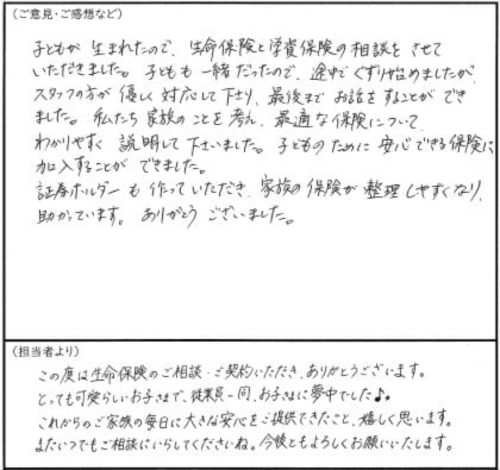 （ご意見・ご感想など）
子どもが 生まれたので、生命保険と学資保険の相談を させて
いただきました。子どもも 一緒だったので、途中で ぐずり始めましたが、
スタッフの方が 優しく 対応して下さり、最後まで お話を することが でき
ました。私たち 家族の ことを 考え、最適な 保険について、
わかりやすく 説明して 下さいました。子どもの ために 安心できる 保険に
加入することが できました。
証券ホルダーも 作って いただき、家族の 保険が 整理 しやすくなり、
助かっています。ありがとう ございました。
（担当者より）
この度は生命保険のご相談・ご契約いただき、ありがとうございます。
とっても可愛らしいお子さまで、従業員一同、お子さまに夢中でした♪。
これからのご家族の毎日に大きな安心をご提供できたこと、嬉しく思います。
またいつでもご相談にいらしてくださいね。今後ともよろしくお願いいたします。